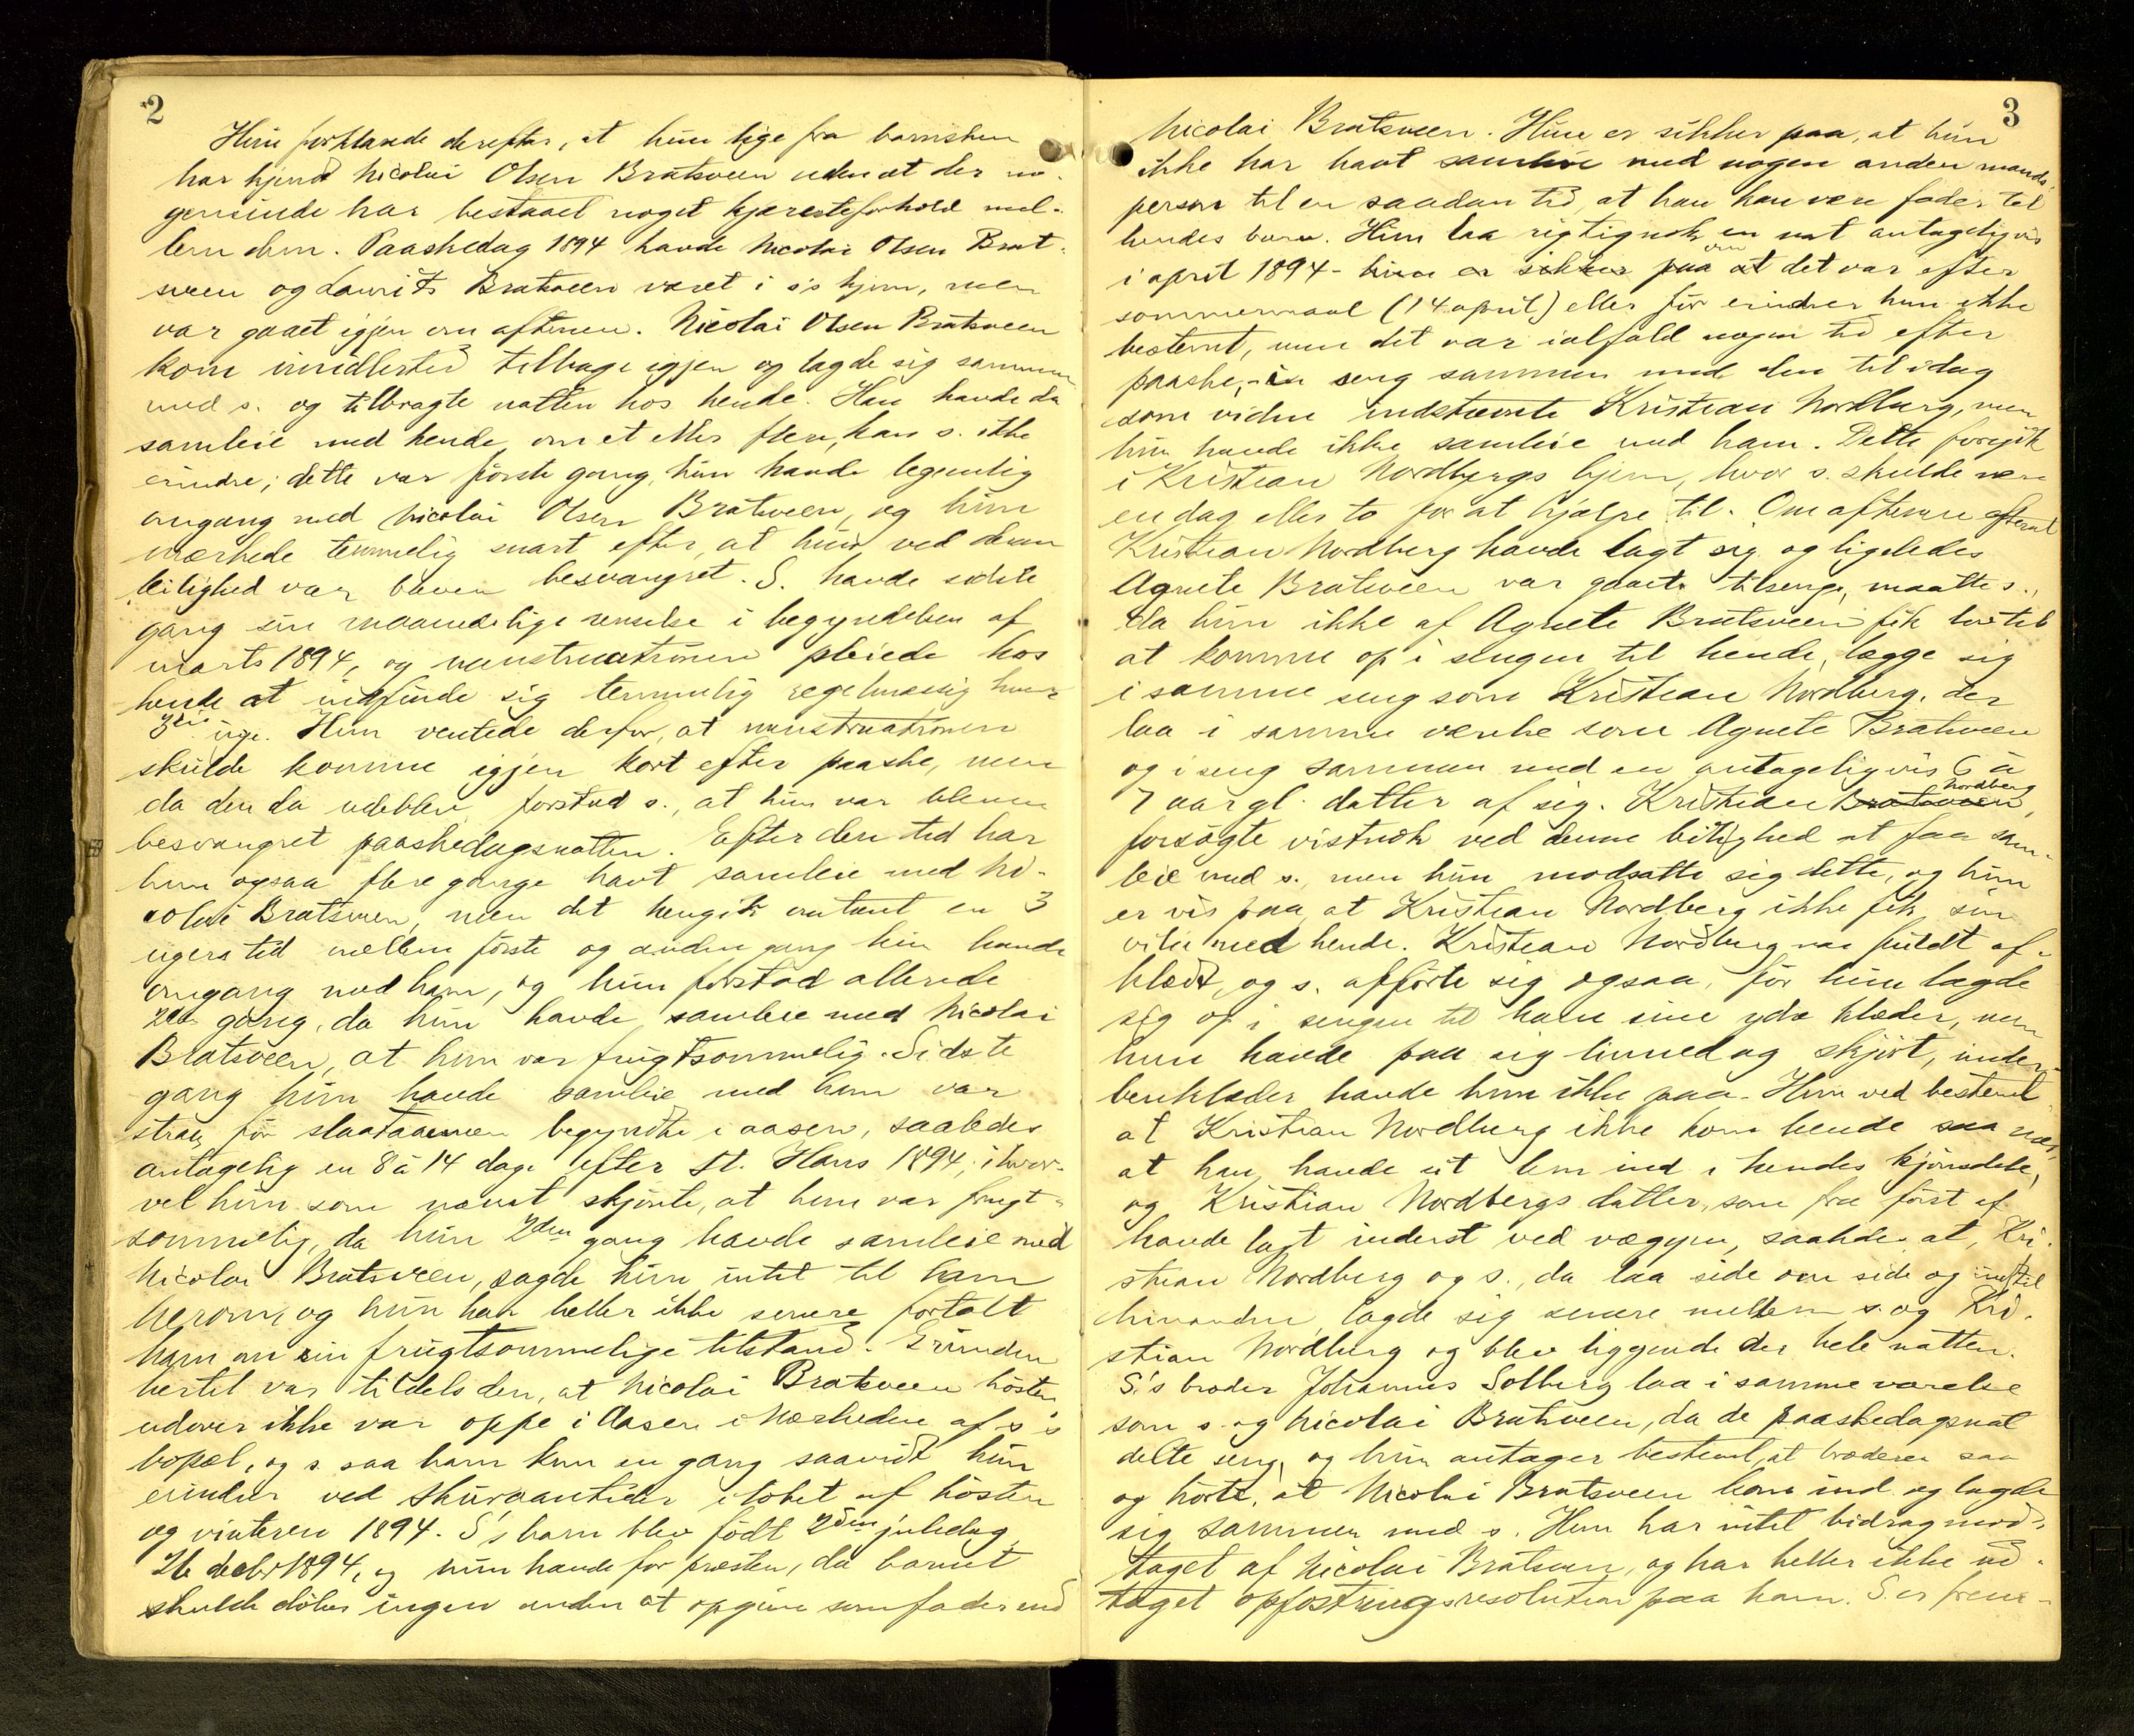 2
Hun forklarede derefter, at hun lige fra barnsben
har kjendt Nicolai Olsen Bratsveen uden at der no-
gensinde har bestaaet noget kjæresteforhold mel-
lem dem. Paaskedag 1894 havde Nicolai Olsen Brat-
sveen og Laurits Bratsveen været i s's hjem, men
var gaaet igjen om aftenen. Nicolai Olsen Bratsveen
kom imidlertid tilbage igjen og lagde sig sammen
med s. og tilbragte natten hos hende. Han havde da
samleie med hende, om et eller flere, kan s. ikke
erindre; dette var første gang, hun havde legemlig
omgang med Nicolai Olsen Bratsveen, og hun
mærkede temmelig snart efter, at hun ved denne
leilighed var bleven besvangret. S. havde sidste
gang sin maanedlige renselse i begyndelsen af
marts 1894, og menstruationen pleiede hos
hende at indfinde sig temmelig regelmæssig hver
3die uge. Hun ventede derfor, at menstruationen
skulde komme igjen kort efter paaske, men
da den da udeblev, forstod s., at hun var bleven
besvangret paaskedagsnatten. Efter den tid har
hun ogsaa flere gange havt samleie med Ni-
colai Bratsveen, men det hengik omtrent en 3
ugers tid mellem første og anden gang hun havde
omgang med ham, og hun forstod allerede
2den gang, da hun havde samleie med Nicolai
Bratsveen, at hun var frugtsommelig. Sidste
gang hun havde samleie med ham var
strax før slaataannen begyndte i aasen, saaledes
antagelig en 8 à 14 dage efter St. Hans 1894; ihvor-
vel hun som nævnt skjønte, at hun var frugt-
sommelig, da hun 2den gang havde samleie med
Nicolai Bratsveen, sagde hun intet til ham
herom, og hun har heller ikke senere fortalt
ham om sin frugtsommelige tilstand. Grunden
hertil var tildels den, at Nicolai Bratsveen høsten
udover ikke var oppe i Aasen i Nærheden af s's
bopæl, og s. saa ham kun en gang saavidt hun
erindrer ved skuraantider i løbet af høsten
og vinteren 1894. S's barn blev født 2den juledag
26 decbr 1894, og hun havde for præsten, da barnet
skulde døbes ingen anden at opgive som fader end
3
Nicolai Bratsveen. Hun er sikker paa, at hun
ikke har havt samleie med nogen anden mands-
person til en saadan tid, at han kan være fader til
hendes barn. Hun laa rigtignok en nat antageligvis
i april 1894 - hun er sikker paa at om det var efter
sommermaal (14 april) eller før erindrer hun ikke
bestemt, men det var ialfald nogen tid efter
paaske, - i seng sammen med den til idag
som vidne indstævnte Kristian Nordberg, men
hun havde ikke samleie med ham. Dette foregik
i Kristian Nordbergs hjem, hvor s. skulde være
en dag eller to for at hjælpe til. Om aftenen efterat
Kristian Nordberg havde lagt sig og ligeledes
Agnete Bratsveen var gaaet tilsengs, maatte s.,
da hun ikke af Agnete Bratsveen fik lov til
at komme op i sengen til hende, lægge sig
i samme seng som Kristian Nordberg, der
laa i samme værelse som Agnete Bratsveen
og i seng sammen med en antageligvis 6 à
7 aar gl. datter af sig. Kristian Bratsveen Nordberg,
forsøgte vistnok ved denne leilighed at faa sam-
leie med s., men hun modsatte sig dette, og hun
er vis paa at Kristian Nordberg ikke fik sin
vilie med hende. Kristian Nordberg var fuldt af-
klædt, og s. afførte sig ogsaa, før hun lagde
sig op i sengen til ham sine ydre klæder, men
hun havde paa sig linned og skjørt, under-
benklæder havde hun ikke paa. Hun ved bestemt
at Kristian Nordberg ikke kom hende saa nær,
at han havde sit lem ind i hendes kjønsdele,
og Kristian Nordbergs datter, som fra først af
havde lagt inderst ved væggen, saaledes at, Kri-
stian Nordberg og s., da laa side om side og indtil
hinanden, lagde sig senere mellem s. og Kri-
stian Nordberg og blev liggende der hele natten.
S.'s broder Johannes Solberg laa i samme værelse
som s. og Nicolai Bratsveen, da de paaskedagsnat
delte seng, og hun antager bestemt, at broderen saa
og hørte, at Nicolai Bratsveen kom ind og lagde
sig sammen med s. Hun har intet bidrag mod-
taget af Nicolai Bratsveen, og har heller ikke ud-
taget opfostringsresolution paa ham. S. er frem-